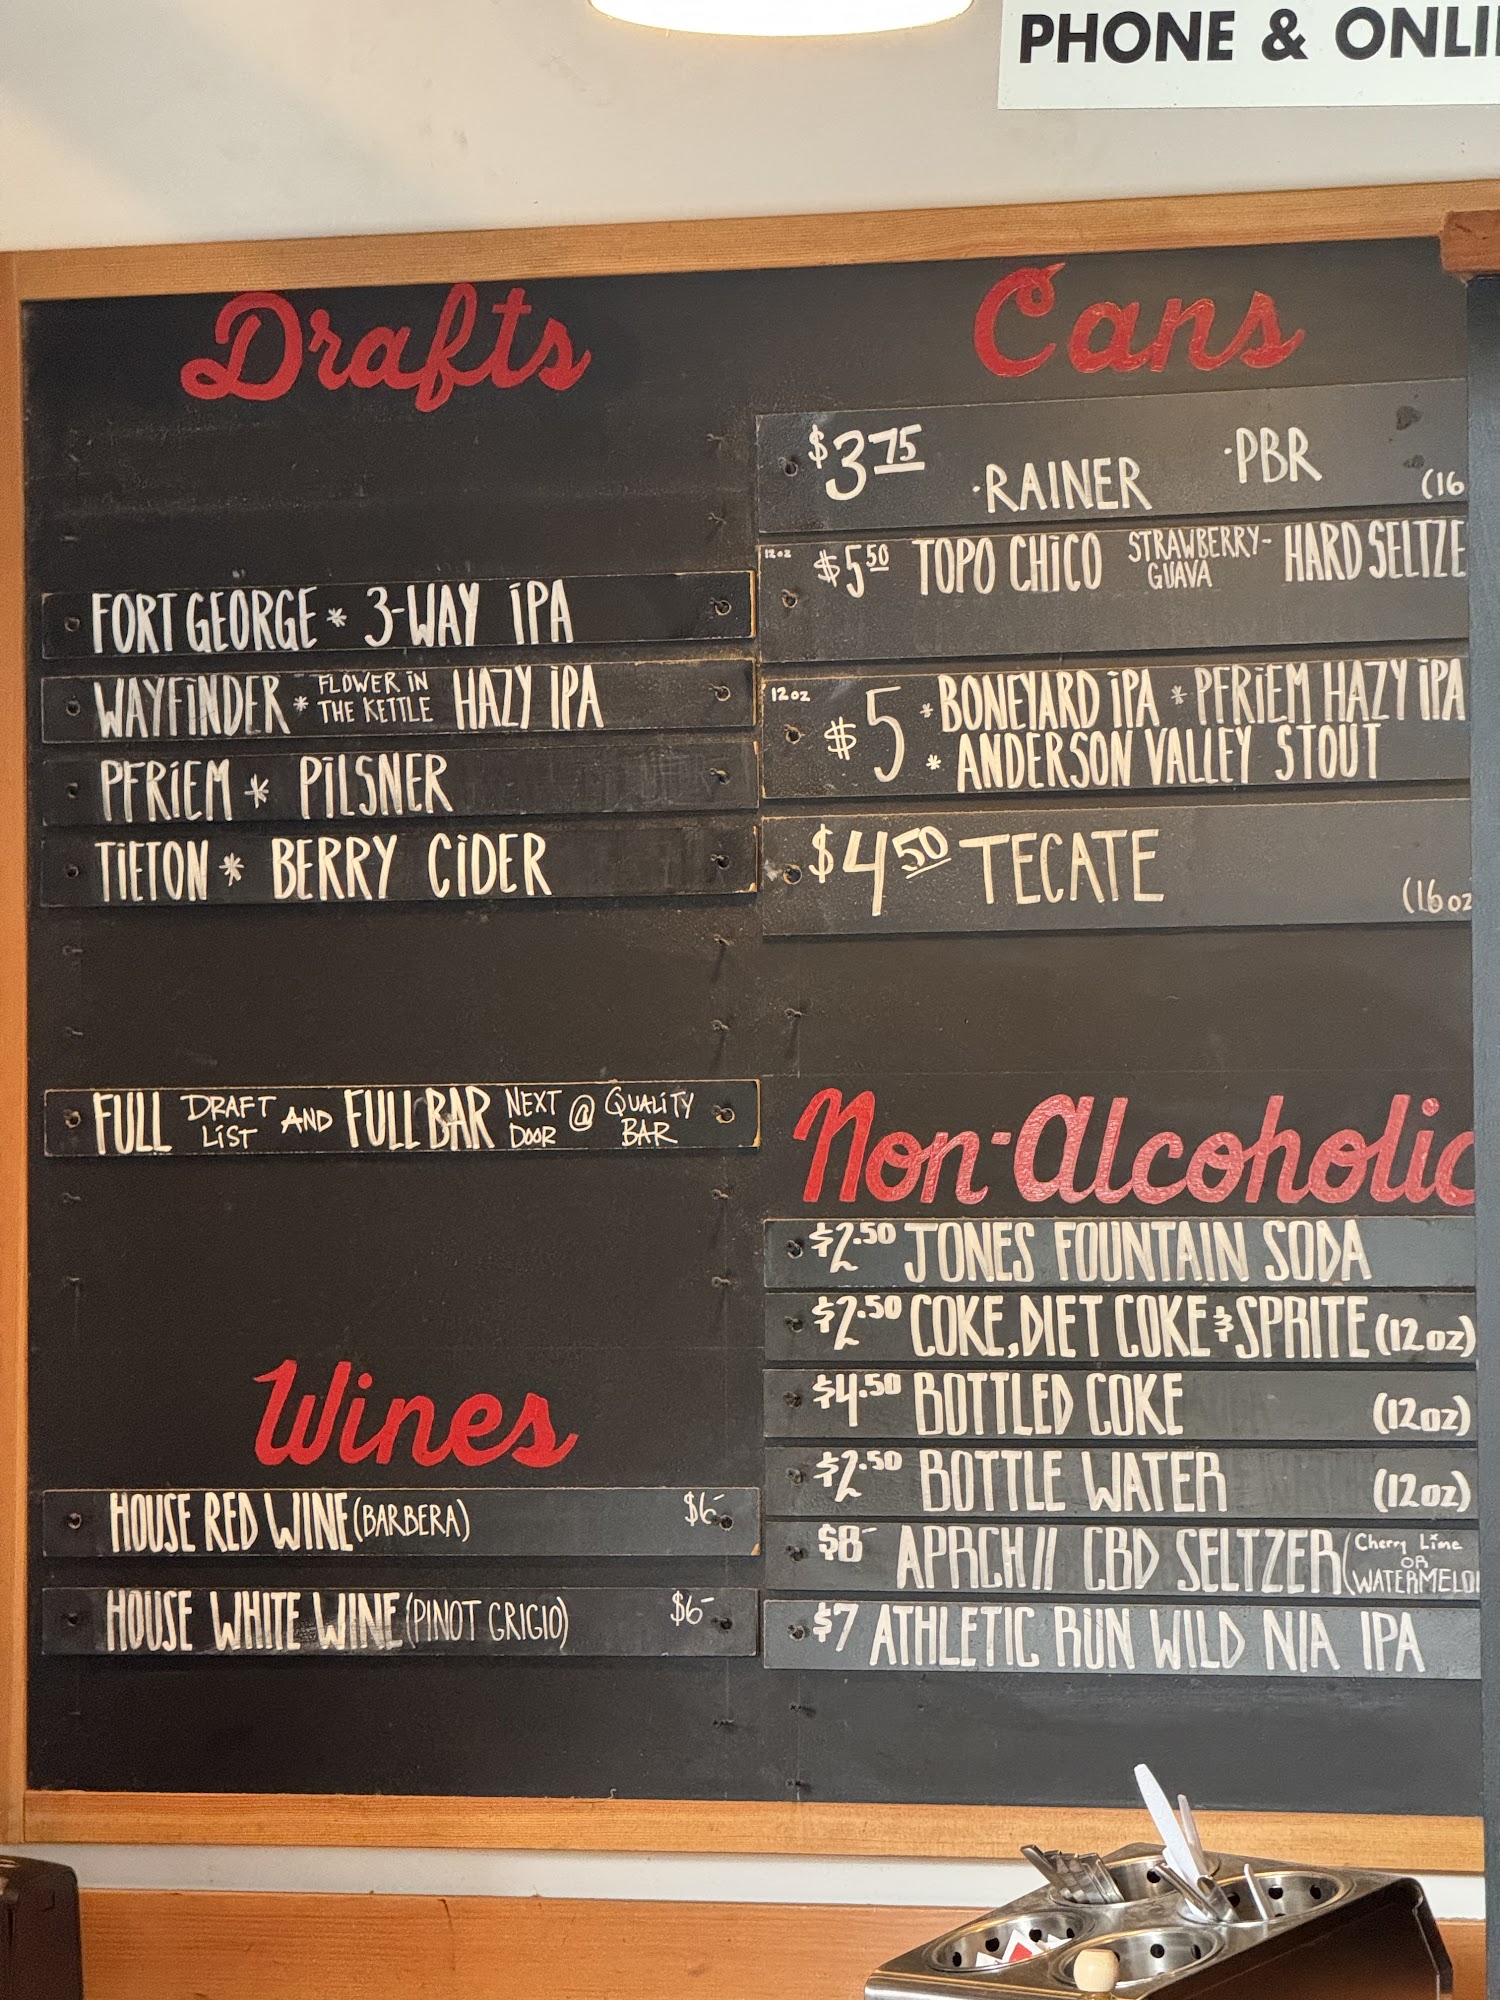 PHONE & ONLI
Drafts
FORT GEORGE * 3-WAY IPA
WAYFINDER * FLOWER IN THE KETTLE HAZY IPA
PFRIEM * PILSNER
TIETON * BERRY CIDER
FULL DRAFT LIST AND FULL BAR NEXT DOOR @ QUALITY BAR
Wines
HOUSE RED WINE (BARBERA) $6-
HOUSE WHITE WINE (PINOT GRIGIO) $6-
Cans
$3.75 ·RAINER ·PBR (16
12oz $5.50 TOPO CHICO STRAWBERRY-GUAVA HARD SELTZE
12oz $5 * BONEYARD IPA * PFRIEM HAZY IPA
* ANDERSON VALLEY STOUT
$4.50 TECATE (16oz
Non-Alcoholic
$2.50 JONES FOUNTAIN SODA
$2.50 COKE, DIET COKE & SPRITE (12oz)
$4.50 BOTTLED COKE (12oz)
$2.50 BOTTLE WATER (12oz)
$8- APRCH// CBD SELTZER (Cherry Lime OR WATERMELO
$7 ATHLETIC RUN WILD N/A IPA